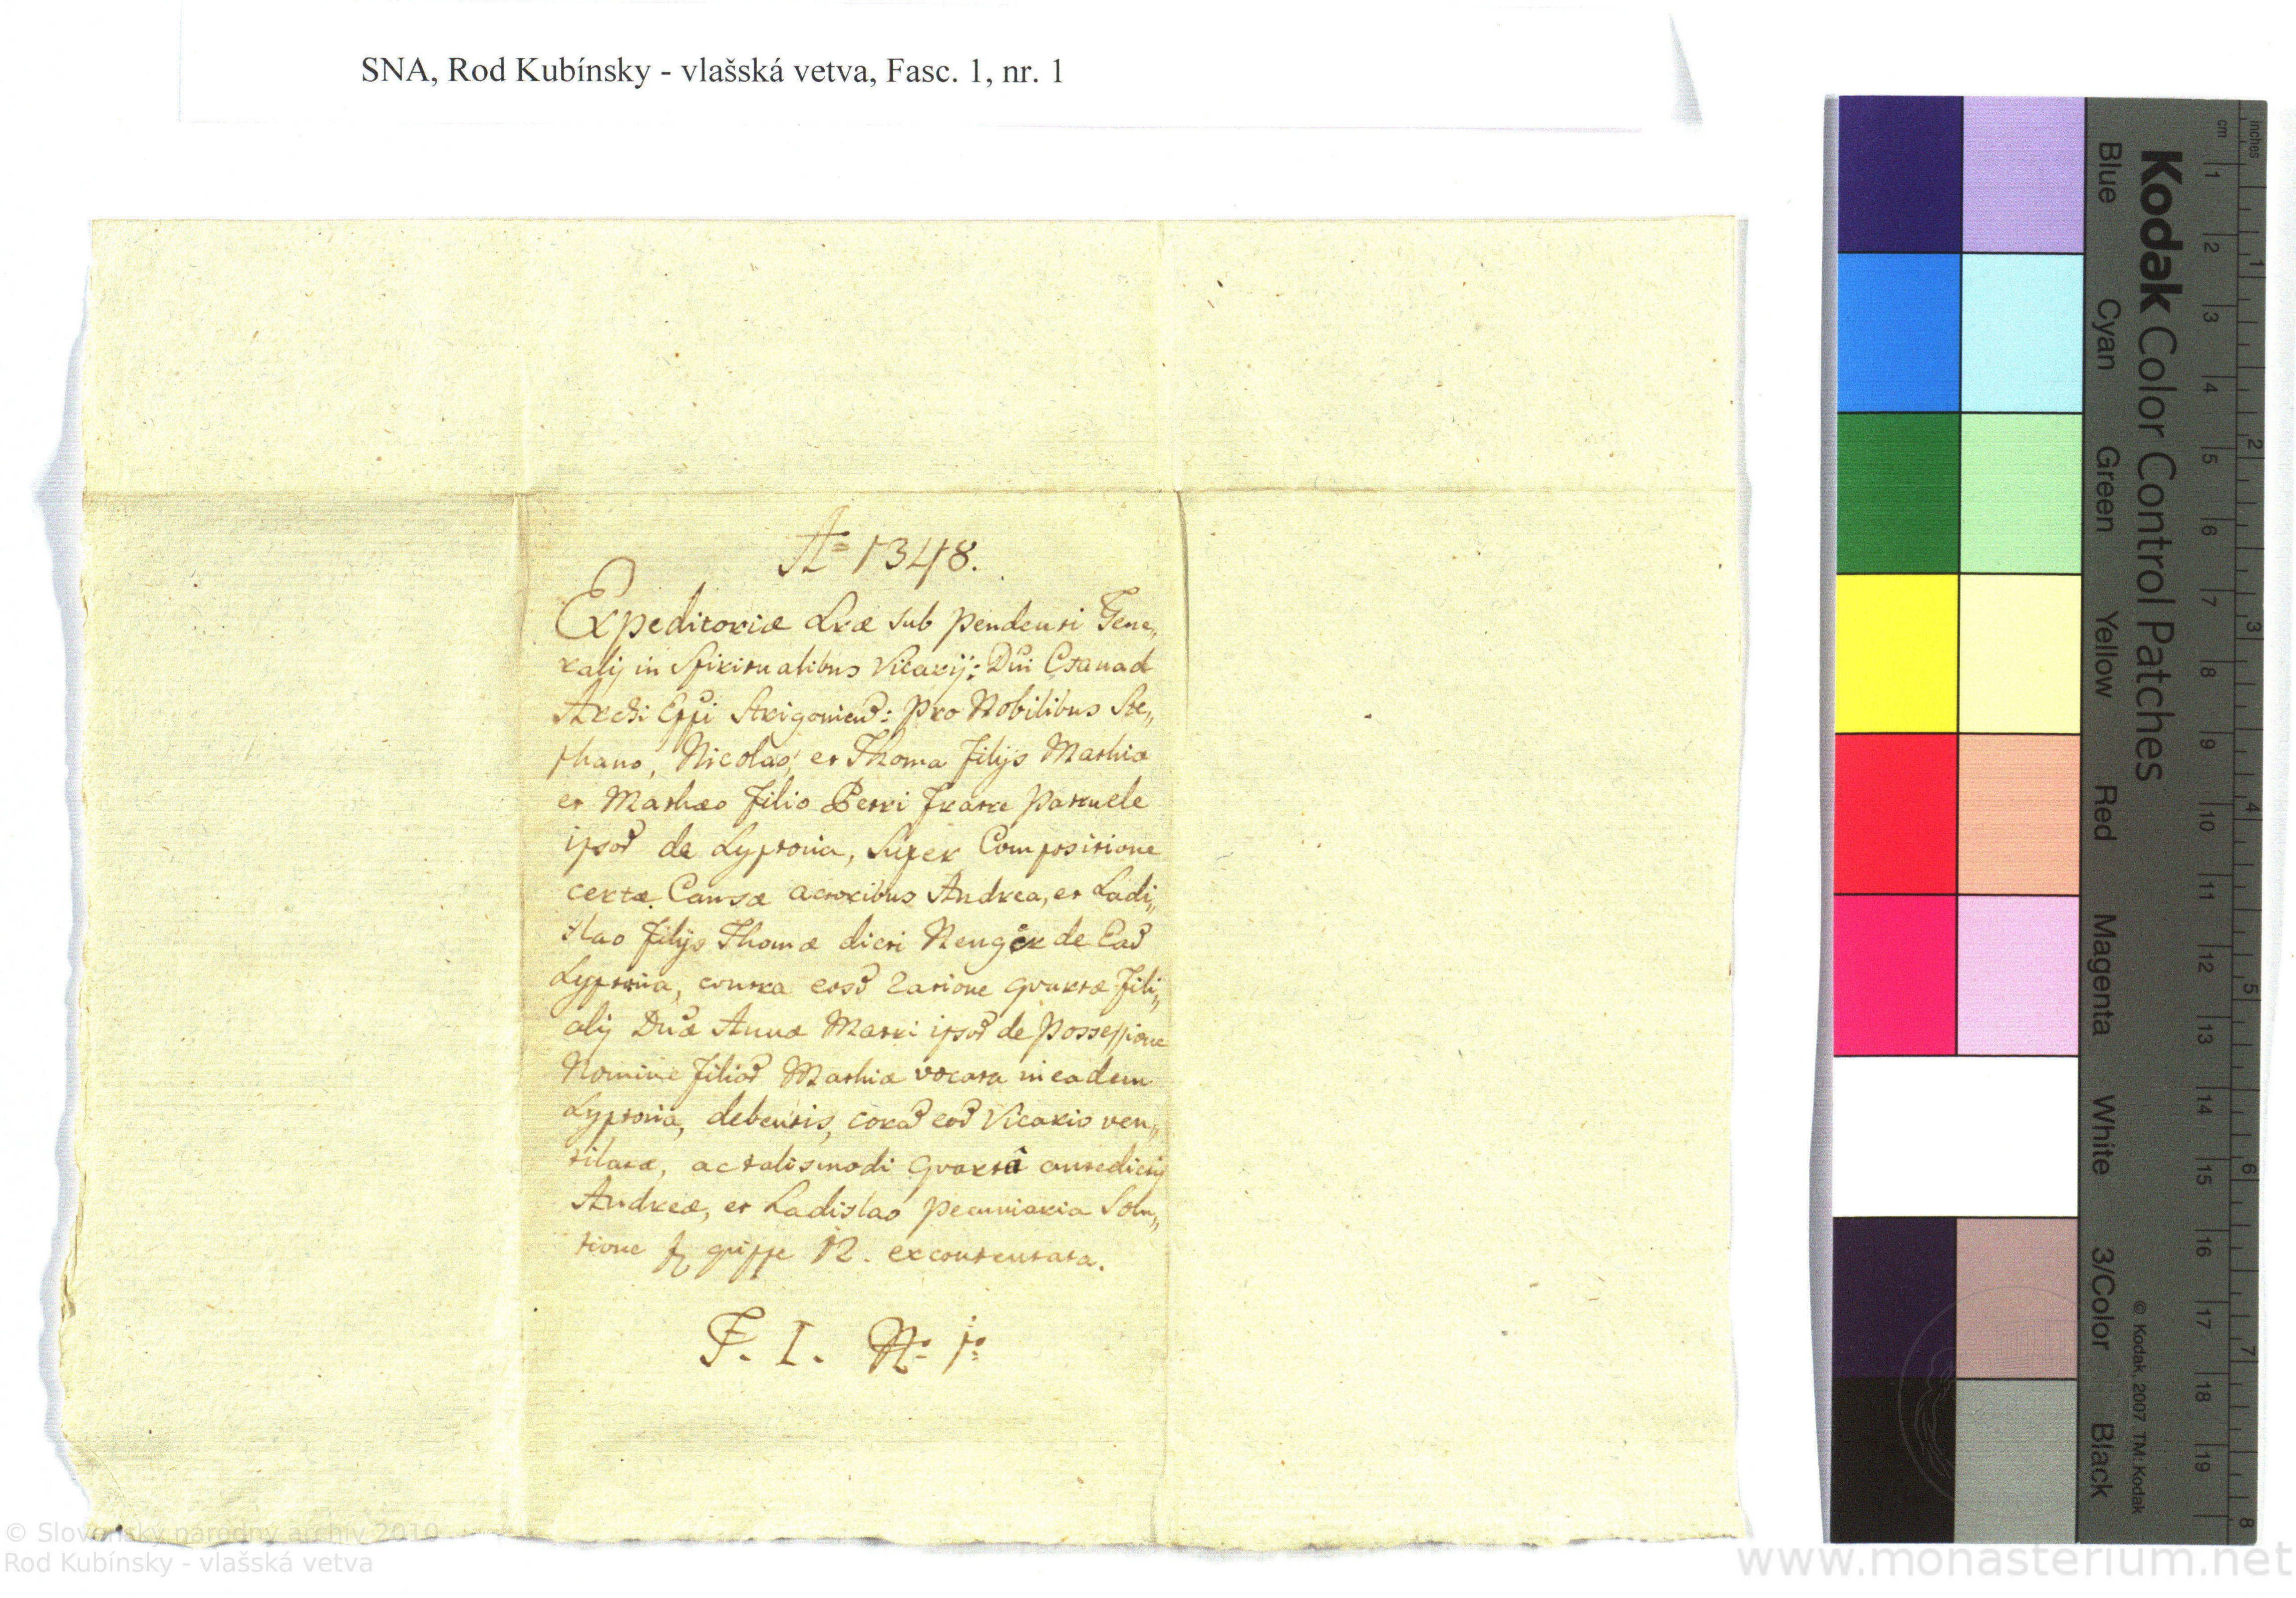 SNA, Rod Kubínsky - vlašská vetva, Fasc. 1, nr. 1
Aº 1348.
Expeditoriæ Lræ sub pendenti Gene„
ralij in Spiritualibus Vicarij: Dni Csanad
Archi Eppi Strigonien: pro Nobilibus Ste„
phano, Nicolao, et Thoma filijs Mathia
et Mathæo filio Petri fratre patruele
ipsor de Lyptovia, super Compositione
certæ Causæ actoribus Andrea, et Ladi„
slao filijs Thomæ dicti de Ead
Lyptovia, contra eosd ratione qvartæ fili„
alij Dnæ Annæ Matri ipsor de possessione
Nomine filior Mathiæ vocata in eadem
Lyptovia, debentis, corad eod Vicario ven„
tilatæ, ac talismodi qvartâ antedictij
Andreæ, et Ladislao pecuniaria Solu„
tione 12. excontentata.
F. I. Nº 1º
Kodak Color Control Patches
Blue Cyan Green Yellow Red Magenta White 3/Color Black
© Kodak, 2007 TM: Kodak
cm 1 2 3 4 5 6 7 8 9 10 11 12 13 14 15 16 17 18 19
inches 1 2 3 4 5 6 7 8
© Slovenský národný archív 2010
Rod Kubínsky - vlašská vetva
www.monasterium.net